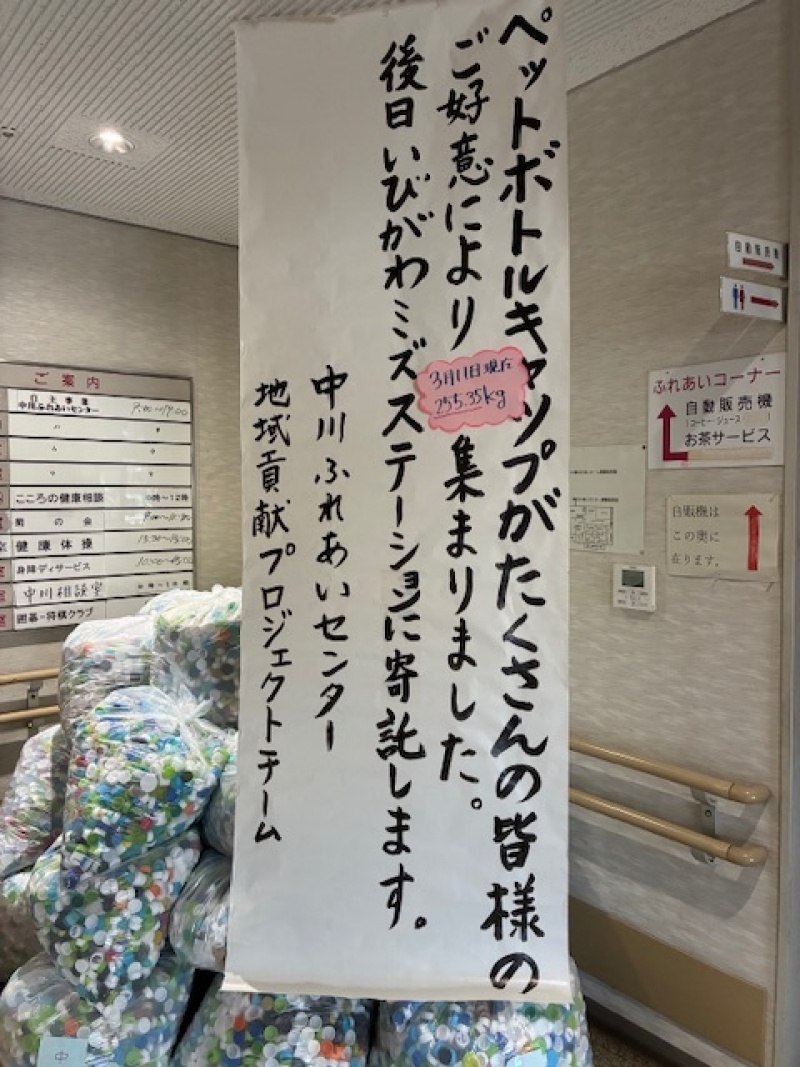 ペットボトルキャップがたくさんの皆様の
ご好意により
3月11日現在
255.35kg
集まりました。
後日いびがわミズズステーションに寄託します。
中川ふれあいセンター
地域貢献プロジェクトチーム
ご案内
自主事業
中川ふれあいセンター
9:00〜17:00
こころの健康相談
9時〜12時
菊の会
健康体操
身障デイサービス
中川相談室
囲碁・将棋クラブ
自動販売機
ふれあいコーナー
自動販売機
(コーヒー・ジュース)
お茶サービス
自販機は
この奥に
在ります。
中